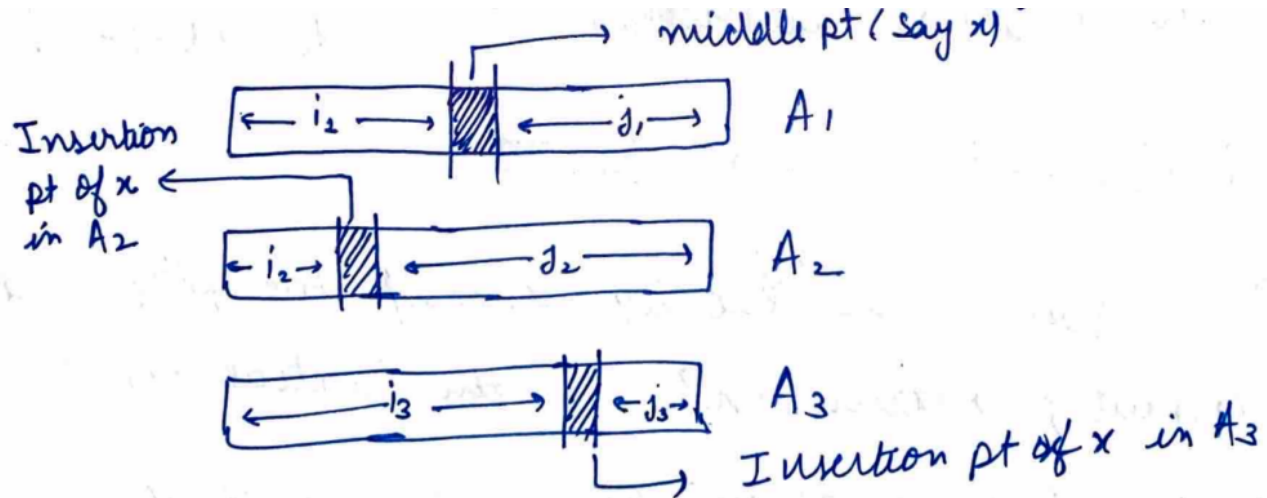 middle pt (say x)
i₂ j₁ A₁
Insertion
pt of x
in A₂
i₂ j₂ A₂
i₃ j₃ A₃
Insertion pt of x in A₃